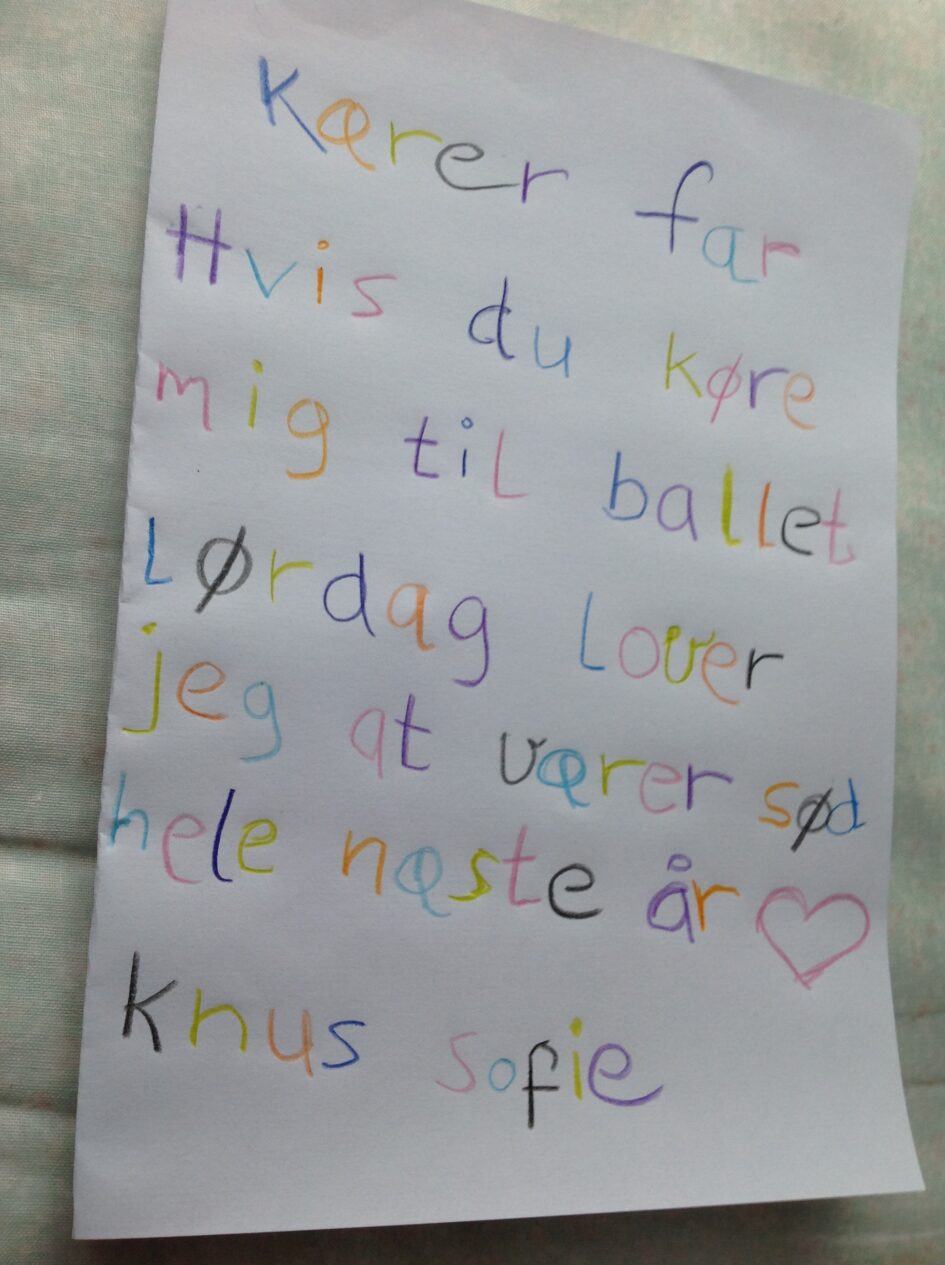 Kærer far
Hvis du køre
mig til ballet
Lørdag Lover
jeg at værer sød
hele næste år
Knus sofie